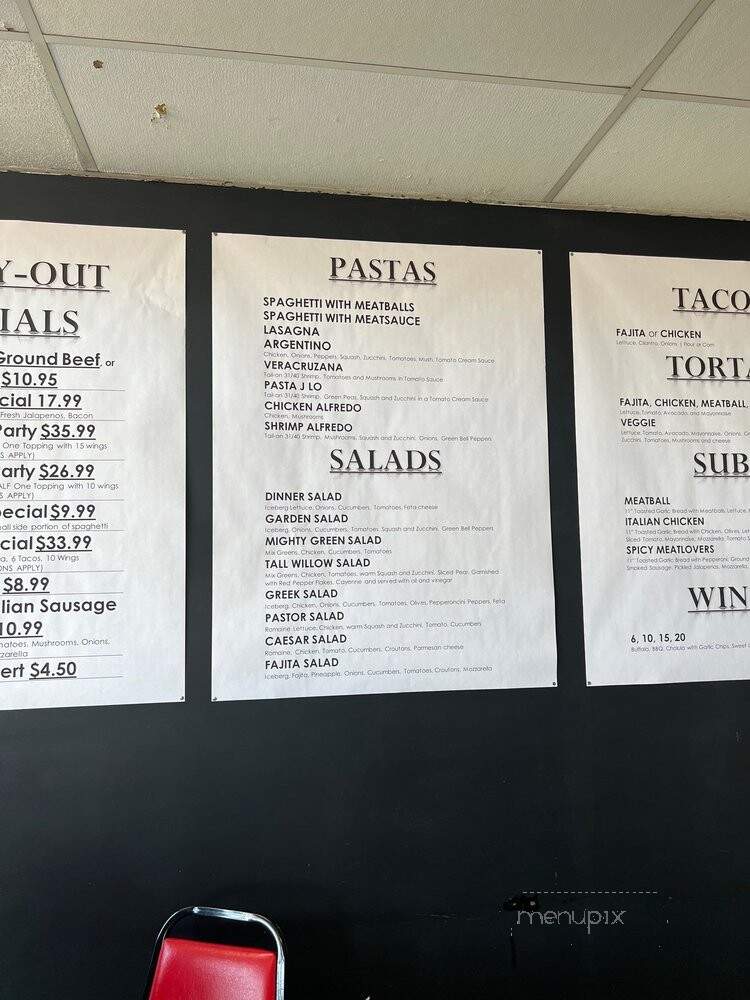 Y-OUT
IALS
Ground Beef, or
$10.95
cial 17.99
Fresh Jalapenos, Bacon
Party $35.99
One Topping with 15 wings
S APPLY)
arty $26.99
ALF One Topping with 10 wings
S APPLY)
ecial $9.99
all side portion of spaghetti
cial $33.99
a, 6 Tacos, 10 Wings
ONS APPLY)
$8.99
lian Sausage
10.99
matoes, Mushrooms, Onions,
zzarella
ert $4.50
PASTAS
SPAGHETTI WITH MEATBALLS
SPAGHETTI WITH MEATSAUCE
LASAGNA
ARGENTINO
Chicken, Onions, Peppers, Squash, Zucchini, Tomatoes, Mush, Tomato Cream Sauce
VERACRUZANA
Tail-on 31/40 Shrimp, Tomatoes and Mushrooms in Tomato Sauce
PASTA J LO
Tail-on 31/40 Shrimp, Green Peas, Squash and Zucchini in a Tomato Cream Sauce
CHICKEN ALFREDO
Chicken, Mushrooms
SHRIMP ALFREDO
Tail-on 31/40 Shrimp, Mushrooms, Squash and Zucchini, Onions, Green Bell Peppers
SALADS
DINNER SALAD
Iceberg Lettuce, Onions, Cucumbers, Tomatoes, Feta cheese
GARDEN SALAD
Iceberg, Onions, Cucumbers, Tomatoes, Squash and Zucchini, Green Bell Peppers
MIGHTY GREEN SALAD
Mix Greens, Chicken, Cucumbers, Tomatoes
TALL WILLOW SALAD
Mix Greens, Chicken, Tomatoes, warm Squash and Zucchini, Sliced Pear, Garnished
with Red Pepper Flakes, Cayenne and served with oil and vinegar
GREEK SALAD
Iceberg, Chicken, Onions, Cucumbers, Tomatoes, Olives, Pepperoncini Peppers, Feta
PASTOR SALAD
Romaine Lettuce, Chicken, warm Squash and Zucchini, Tomato, Cucumbers
CAESAR SALAD
Romaine, Chicken, Tomato, Cucumbers, Croutons, Parmesan cheese
FAJITA SALAD
Iceberg, Fajita, Pineapple, Onions, Cucumbers, Tomatoes, Croutons, Mozzarella
TACO
FAJITA or CHICKEN
Lettuce, Cilantro, Onions | Flour or Corn
TORTA
FAJITA, CHICKEN, MEATBALL,
Lettuce, Tomato, Avocado, and Mayonnaise
VEGGIE
Lettuce, Tomato, Avocado, Mayonnaise, Onions, Gr
Zucchini, Tomatoes, Mushrooms and cheese
SUB
MEATBALL
11" Toasted Garlic Bread with Meatballs, Lettuce,
ITALIAN CHICKEN
11" Toasted Garlic Bread with Chicken, Olives, Let
Sliced Tomato, Mayonnaise, Mozzarella, Tomato S
SPICY MEATLOVERS
11" Toasted Garlic Bread with Pepperoni, Ground
Smoked Sausage, Pickled Jalapenos, Mozzarella,
WIN
6, 10, 15, 20
Buffalo, BBQ, Cholula with Garlic Chips, Sweet
menupix